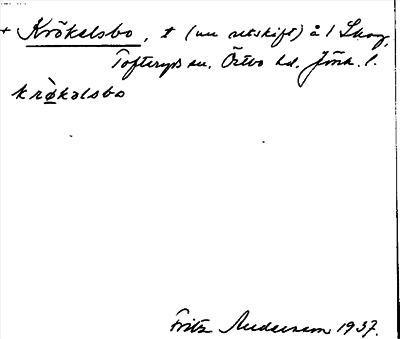 + Krökelsbo, t (nu utskift) å 1 Skog,
Tofteryds sn. Östbo hd. Jönk. l.
kròkəlsbo
Fritz Andersson 1937.